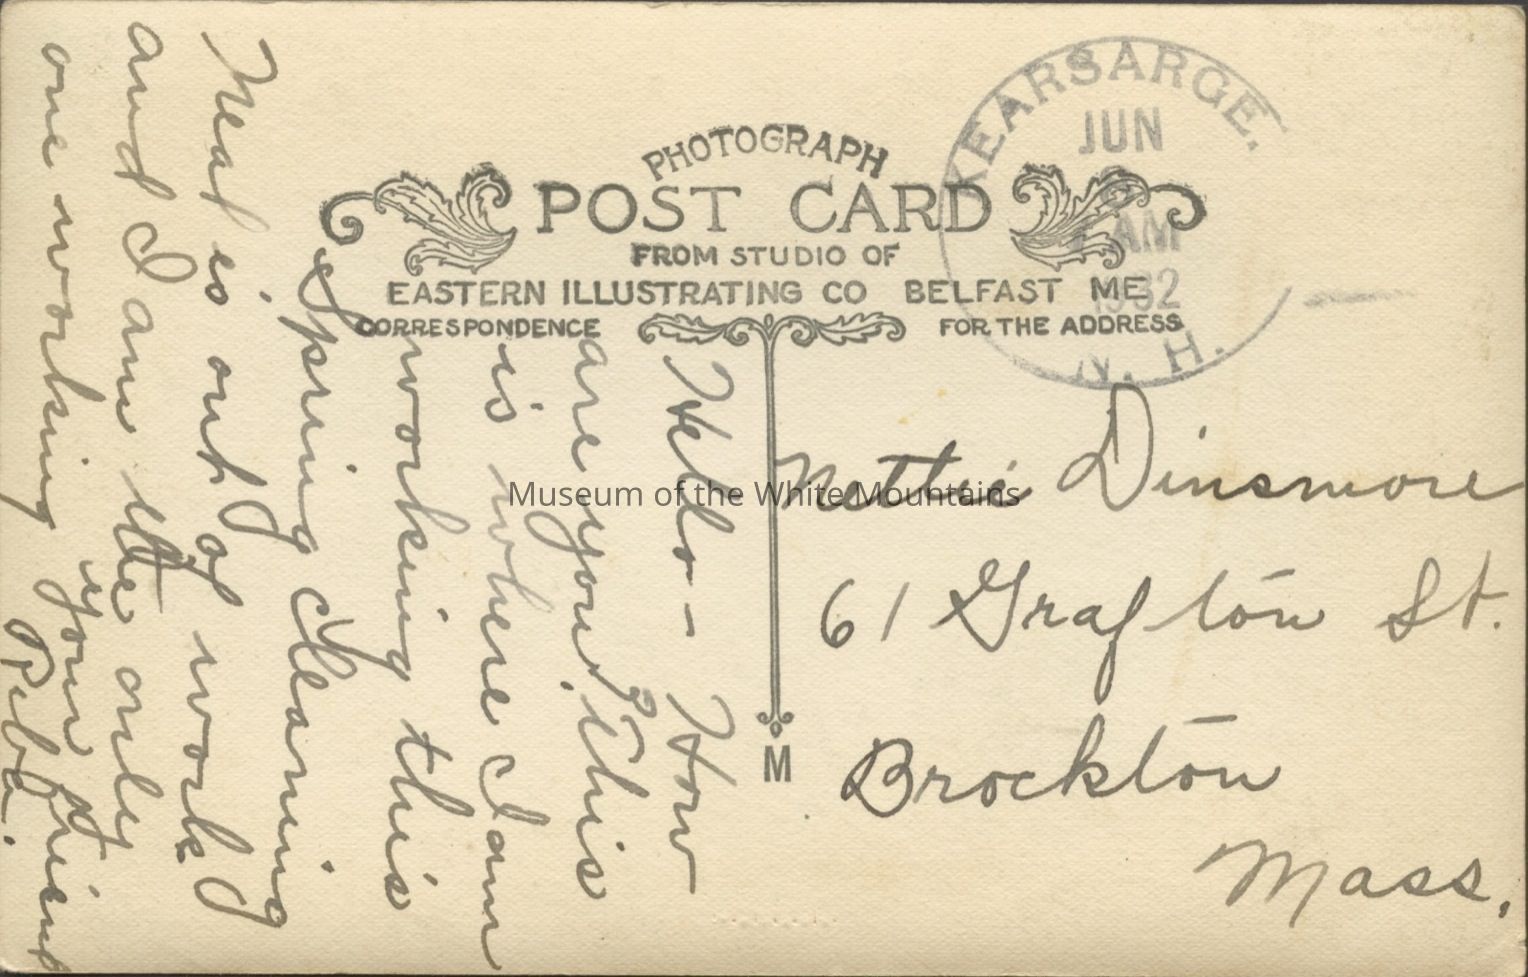 KEARSARGE.
JUN
AM
1932
N. H.
PHOTOGRAPH
POST CARD
FROM STUDIO OF
EASTERN ILLUSTRATING CO BELFAST ME
CORRESPONDENCE
FOR THE ADDRESS
Hello - How
are you? This
is where I am
working this
Spring Cleaning
Neal is out of work
and I am the only
one working
your friend
Reba.
M
Nettie Dinsmore
61 Grafton St.
Brockton
Mass.
Museum of the White Mountains